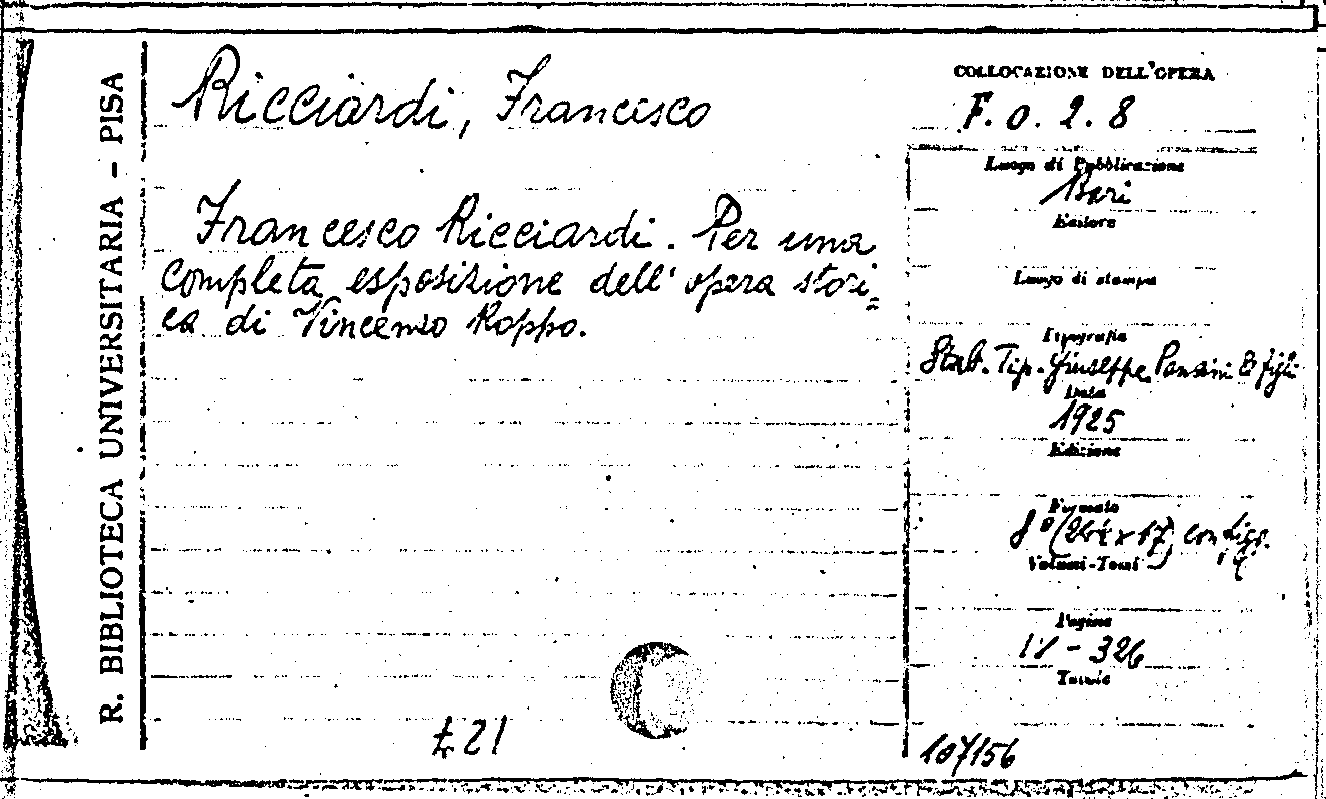 R. BIBLIOTECA UNIVERSITARIA - PISA
Ricciardi, Francesco
Francesco Ricciardi. Per una
completa esposizione dell' opera stori=
ca di Vincenzo Roppo.
£21
COLLOCAZIONE DELL'OPERA
F. 0. 2. 8
Luogo di Pubblicazione
Bari
Editore
Luogo di stampa
Tipografia
Stab. Tip. Giuseppe Pansini & figli
Data
1925
Edizione
Formato
8° (24½ x 17) con figg.
Volumi-Tomi
Pagine
IV - 326
Tavole
107156